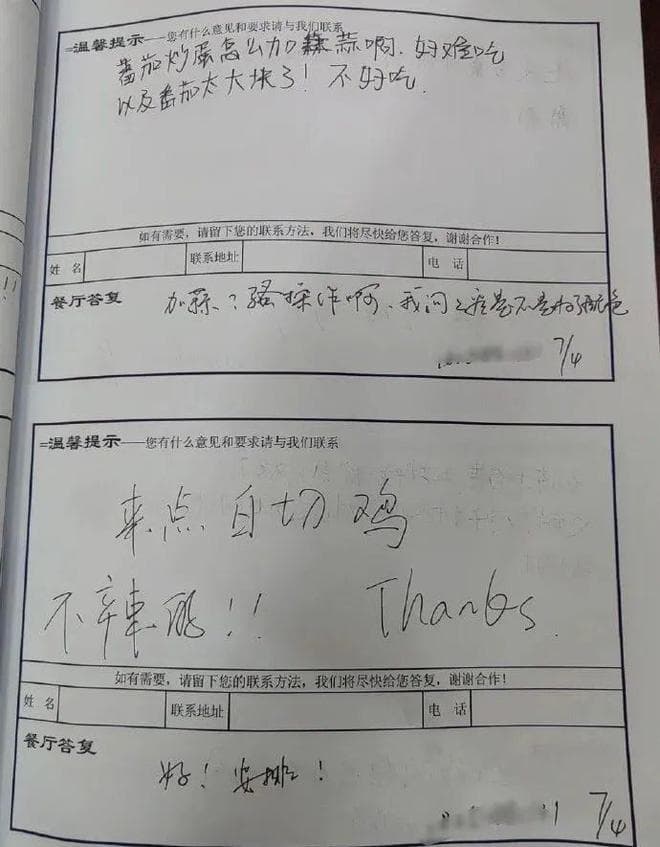 =温馨提示——您有什么意见和要求请与我们联系
番茄炒蛋怎么加蒜啊,好难吃
以及番茄太大块了!不好吃.
如有需要,请留下您的联系方法,我们将尽快给您答复,谢谢合作!
姓 名 联系地址 电 话
餐厅答复 加蒜?骚操作啊,我问
7/4
=温馨提示——您有什么意见和要求请与我们联系
来点白切鸡
不辣!! Thanks.
如有需要,请留下您的联系方法,我们将尽快给您答复,谢谢合作!
姓 名 联系地址 电 话
餐厅答复
好!安排!
7/4